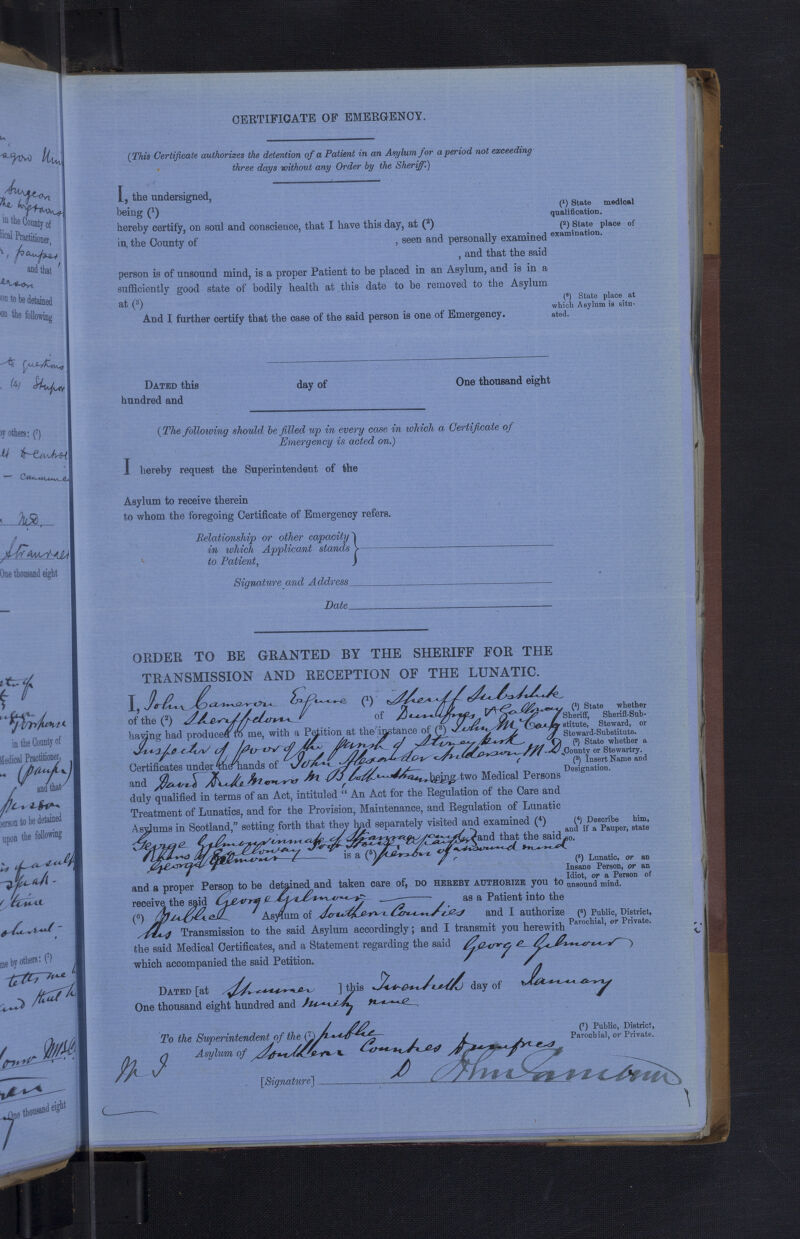 CERTIFICATE OF EMERGENCY.
(This Certificate authorizes the detention of a Patient in an Asylum for a period not exceeding
three days without any Order by the Sheriff.)
I, the undersigned,
being (¹)
hereby certify, on soul and conscience, that I have this day, at (²)
in the County of , seen and personally examined
, and that the said
person is of unsound mind, is a proper Patient to be placed in an Asylum, and is in a
sufficiently good state of bodily health at this date to be removed to the Asylum
at (³)
And I further certify that the case of the said person is one of Emergency.
(¹) State medical
qualification.
(²) State place of
examination.
(³) State place at
which Asylum is situ-
ated.
DATED this day of One thousand eight
hundred and
(The following should be filled up in every case in which a Certificate of
Emergency is acted on.)
I hereby request the Superintendent of the
Asylum to receive therein
to whom the foregoing Certificate of Emergency refers.
Relationship or other capacity
in which Applicant stands
to Patient,
Signature and Address
Date
ORDER TO BE GRANTED BY THE SHERIFF FOR THE
TRANSMISSION AND RECEPTION OF THE LUNATIC.
I, John Cameron Esquire (¹) Sheriff Substitute
of the (²) Sheriffdom of Dumfries & Galloway
having had produced to me, with a Petition at the instance of (³) John McCaig
Inspector of poor of the parish of Stoneykirk
Certificates under the hands of John Alexander Anderson, M.D.
and David Duke Monro M B being two Medical Persons
duly qualified in terms of an Act, intituled "An Act for the Regulation of the Care and
Treatment of Lunatics, and for the Provision, Maintenance, and Regulation of Lunatic
Asylums in Scotland," setting forth that they had separately visited and examined (⁴)
George Gilmour inmate of Stranraer and
Rhins of Galloway Poor House a pauper and that the said
George Gilmour is a (⁵) person of unsound mind
and a proper Person to be detained and taken care of, DO HEREBY AUTHORIZE you to
receive the said George Gilmour as a Patient into the
(⁶) Public Asylum of Southern Counties and I authorize
this Transmission to the said Asylum accordingly; and I transmit you herewith
the said Medical Certificates, and a Statement regarding the said George Gilmour
which accompanied the said Petition.
(¹) State whether
Sheriff, Sheriff-Sub-
stitute, Steward, or
Steward-Substitute.
(²) State whether a
County or Stewartry.
(³) Insert Name and
Designation.
(⁴) Describe him,
and if a Pauper, state
so.
(⁵) Lunatic, or an
Insane Person, or an
Idiot, or a Person of
unsound mind.
(⁶) Public, District,
Parochial, or Private.
DATED [at Stranraer ] this Twentieth day of January
One thousand eight hundred and ninety nine
To the Superintendent of the (⁷) public
Asylum of Southern Counties Dumfries
(⁷) Public, District,
Parochial, or Private.
[Signature] John Cameron